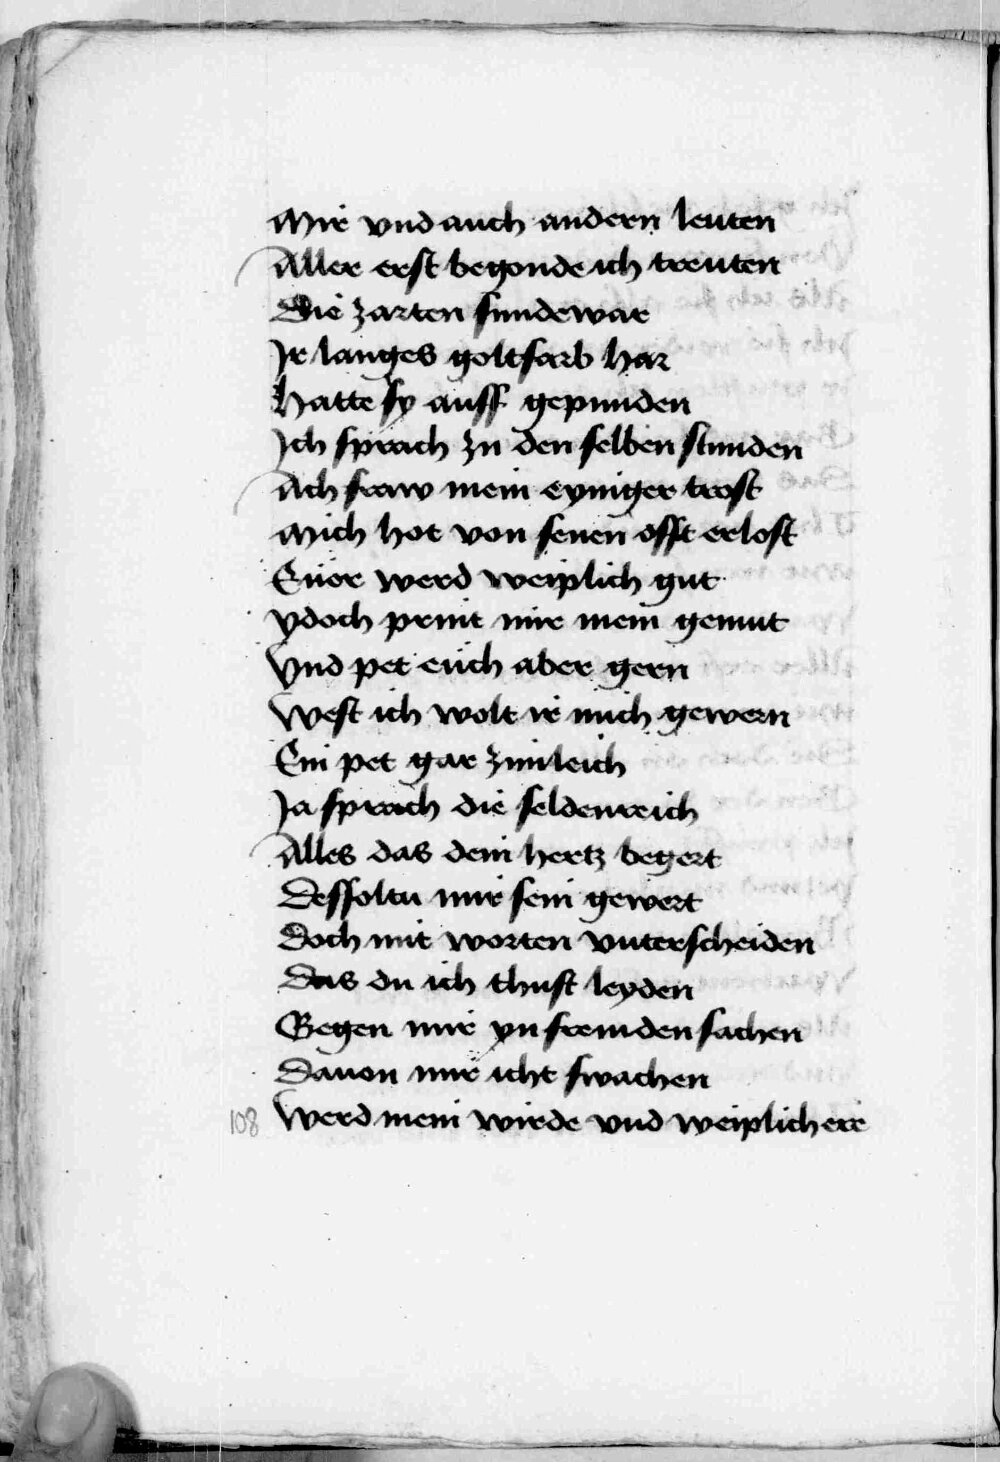 Mir vnd auch andern leuten
Aller erst begonde ich treuten
Die zarten sundewar
Jr langes goltfarb har
Hatte sy auff gepunden
Jch sprach zu den selben stunden
Ach fraw mein eyniger trost
Mich hot von senen offt erlost
Eüor werd weiplich gut
ydoch print mir mein gemut
Vnd pet eüch aber gern
West ich wolt ir mich gewern
Ein pet gar zimleich
Ja sprach die seldenreich
Alles das dein hertz begert
Dessoltu mir sein gewert
Doch mit worten vnterscheiden
Das du ich thust leyden
Gegen mir yn fremden sachen
Dauon mir icht swachen
108 Werd mein wirde vnd weiplich ere